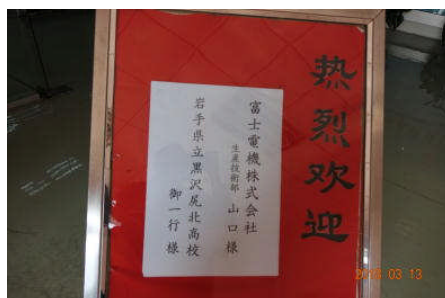 热烈欢迎
富士電機株式会社
生産技術部 山口様
岩手県立黒沢尻北高校
御一行様